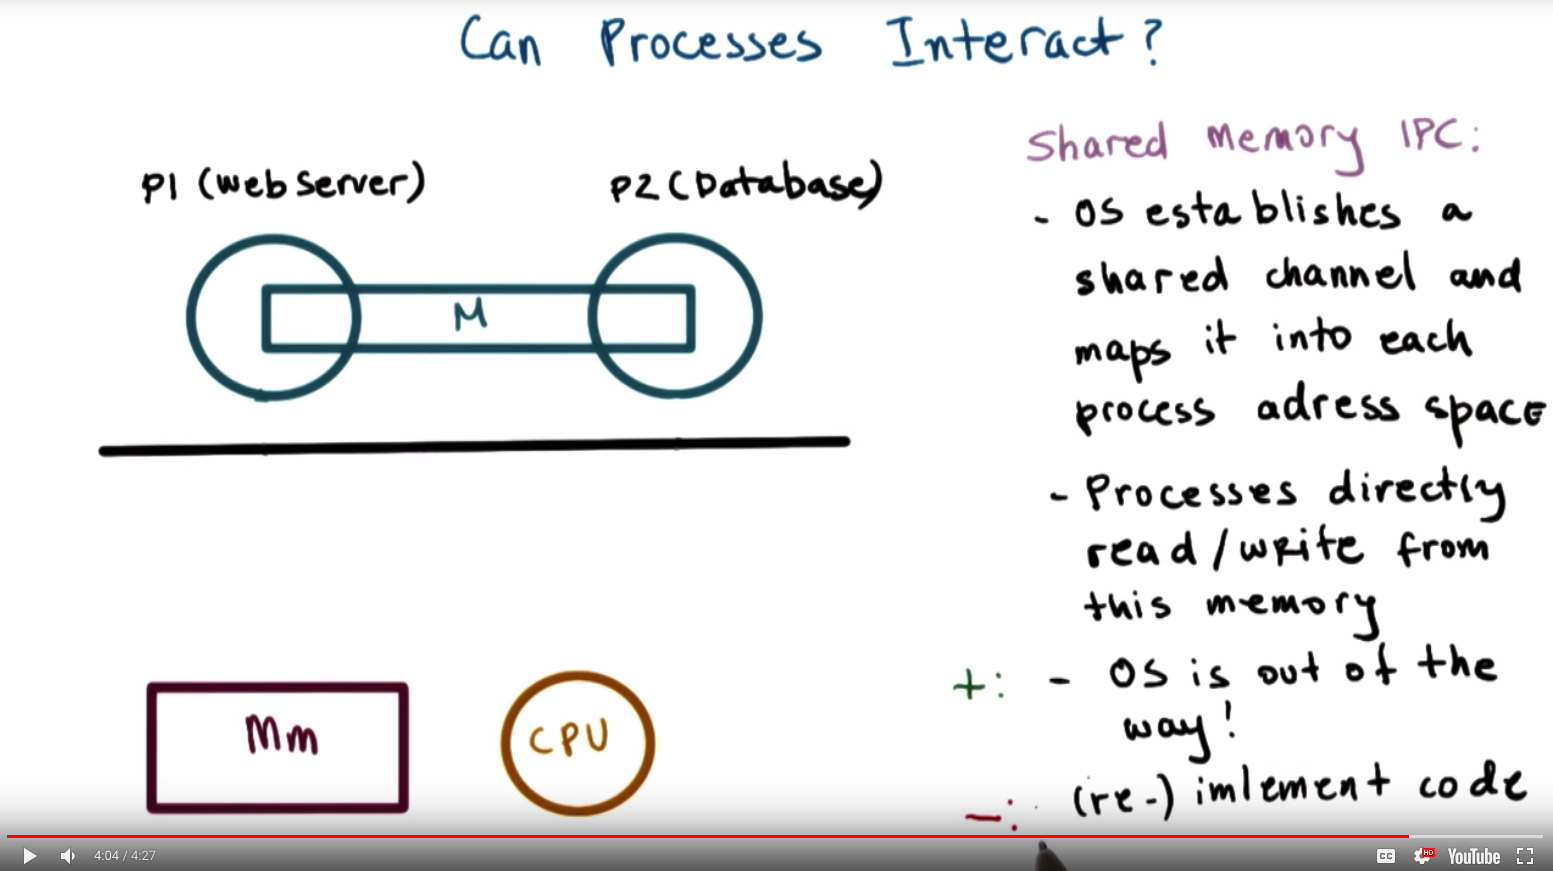 Can Processes Interact?
P1 (web server)
P2 (Database)
M
Mm
CPU
Shared Memory IPC:
- OS establishes a
shared channel and
maps it into each
process adress space
- Processes directly
read/write from
this memory
+: - OS is out of the
way!
-: (re-) imlement code
4:04 / 4:27
CC
HD
YouTube